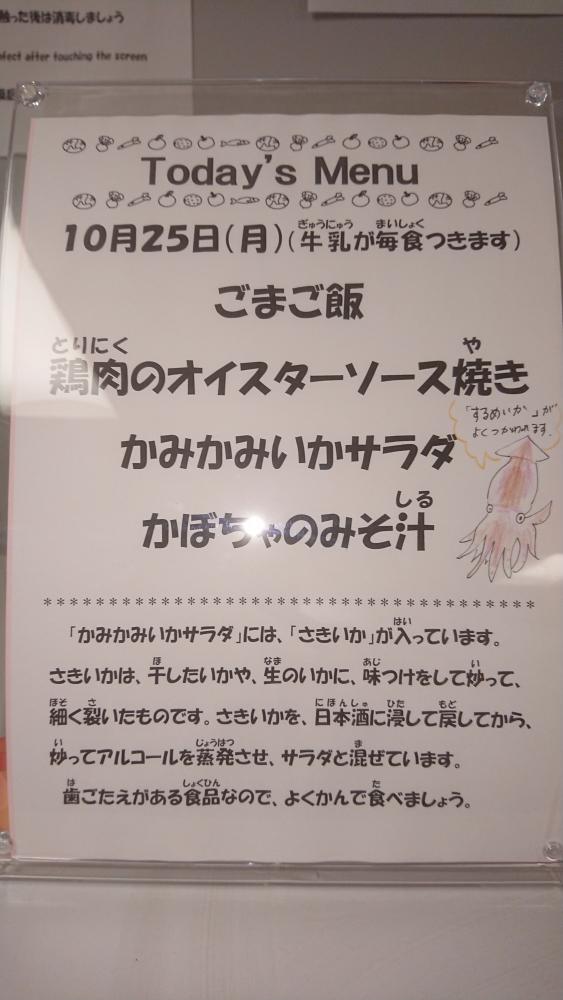 触った後は消毒しましょう
nfect after touching the screen
Today's Menu
10月25日(月)(牛乳が毎食つきます)
ぎゅうにゅう まいしょく
ごまご飯
とりにく や
鶏肉のオイスターソース焼き
「するめいか」が
よくつかわれます。
かみかみいかサラダ
しる
かぼちゃのみそ汁
************************************
はい
「かみかみいかサラダ」には、「さきいか」が入っています。
ほ なま あじ い
さきいかは、干したいかや、生のいかに、味つけをして炒って、
ほそ さ にほんしゅ ひた もど
細く裂いたものです。さきいかを、日本酒に浸して戻してから、
い じょうはつ ま
炒ってアルコールを蒸発させ、サラダと混ぜています。
は しょくひん た
歯ごたえがある食品なので、よくかんで食べましょう。